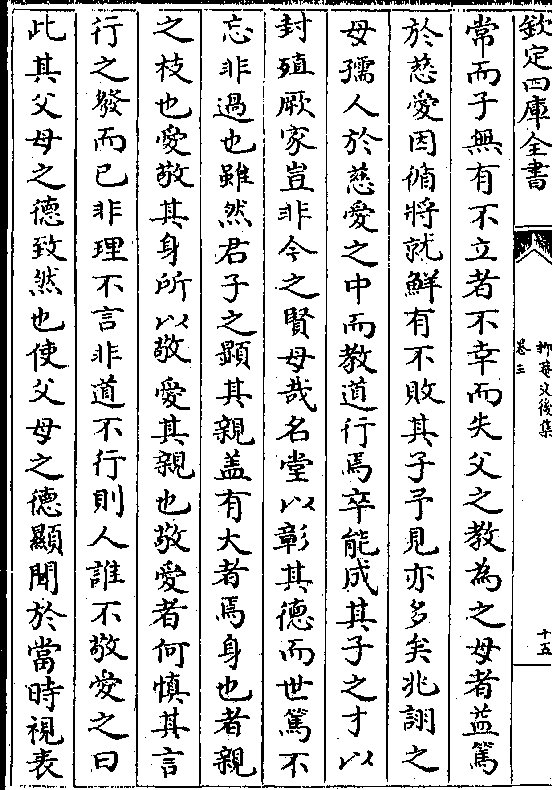 欽定四庫全書
柳菴文後集
卷三
十五
常而子無有不立者不幸而失父之教為之母者益篤
於慈愛因循將就鮮有不敗其子予見亦多矣兆詡之
母孺人於慈愛之中而教道行焉卒能成其子之才以
封殖厥家豈非今之賢母哉名堂以彰其德而世篤不
忘非過也雖然君子之顯其親盖有大者焉身也者親
之枝也愛敬其身所以敬愛其親也敬愛者何慎其言
行之發而已非理不言非道不行則人誰不敬愛之曰
此其父母之德致然也使父母之德顯聞於當時視表